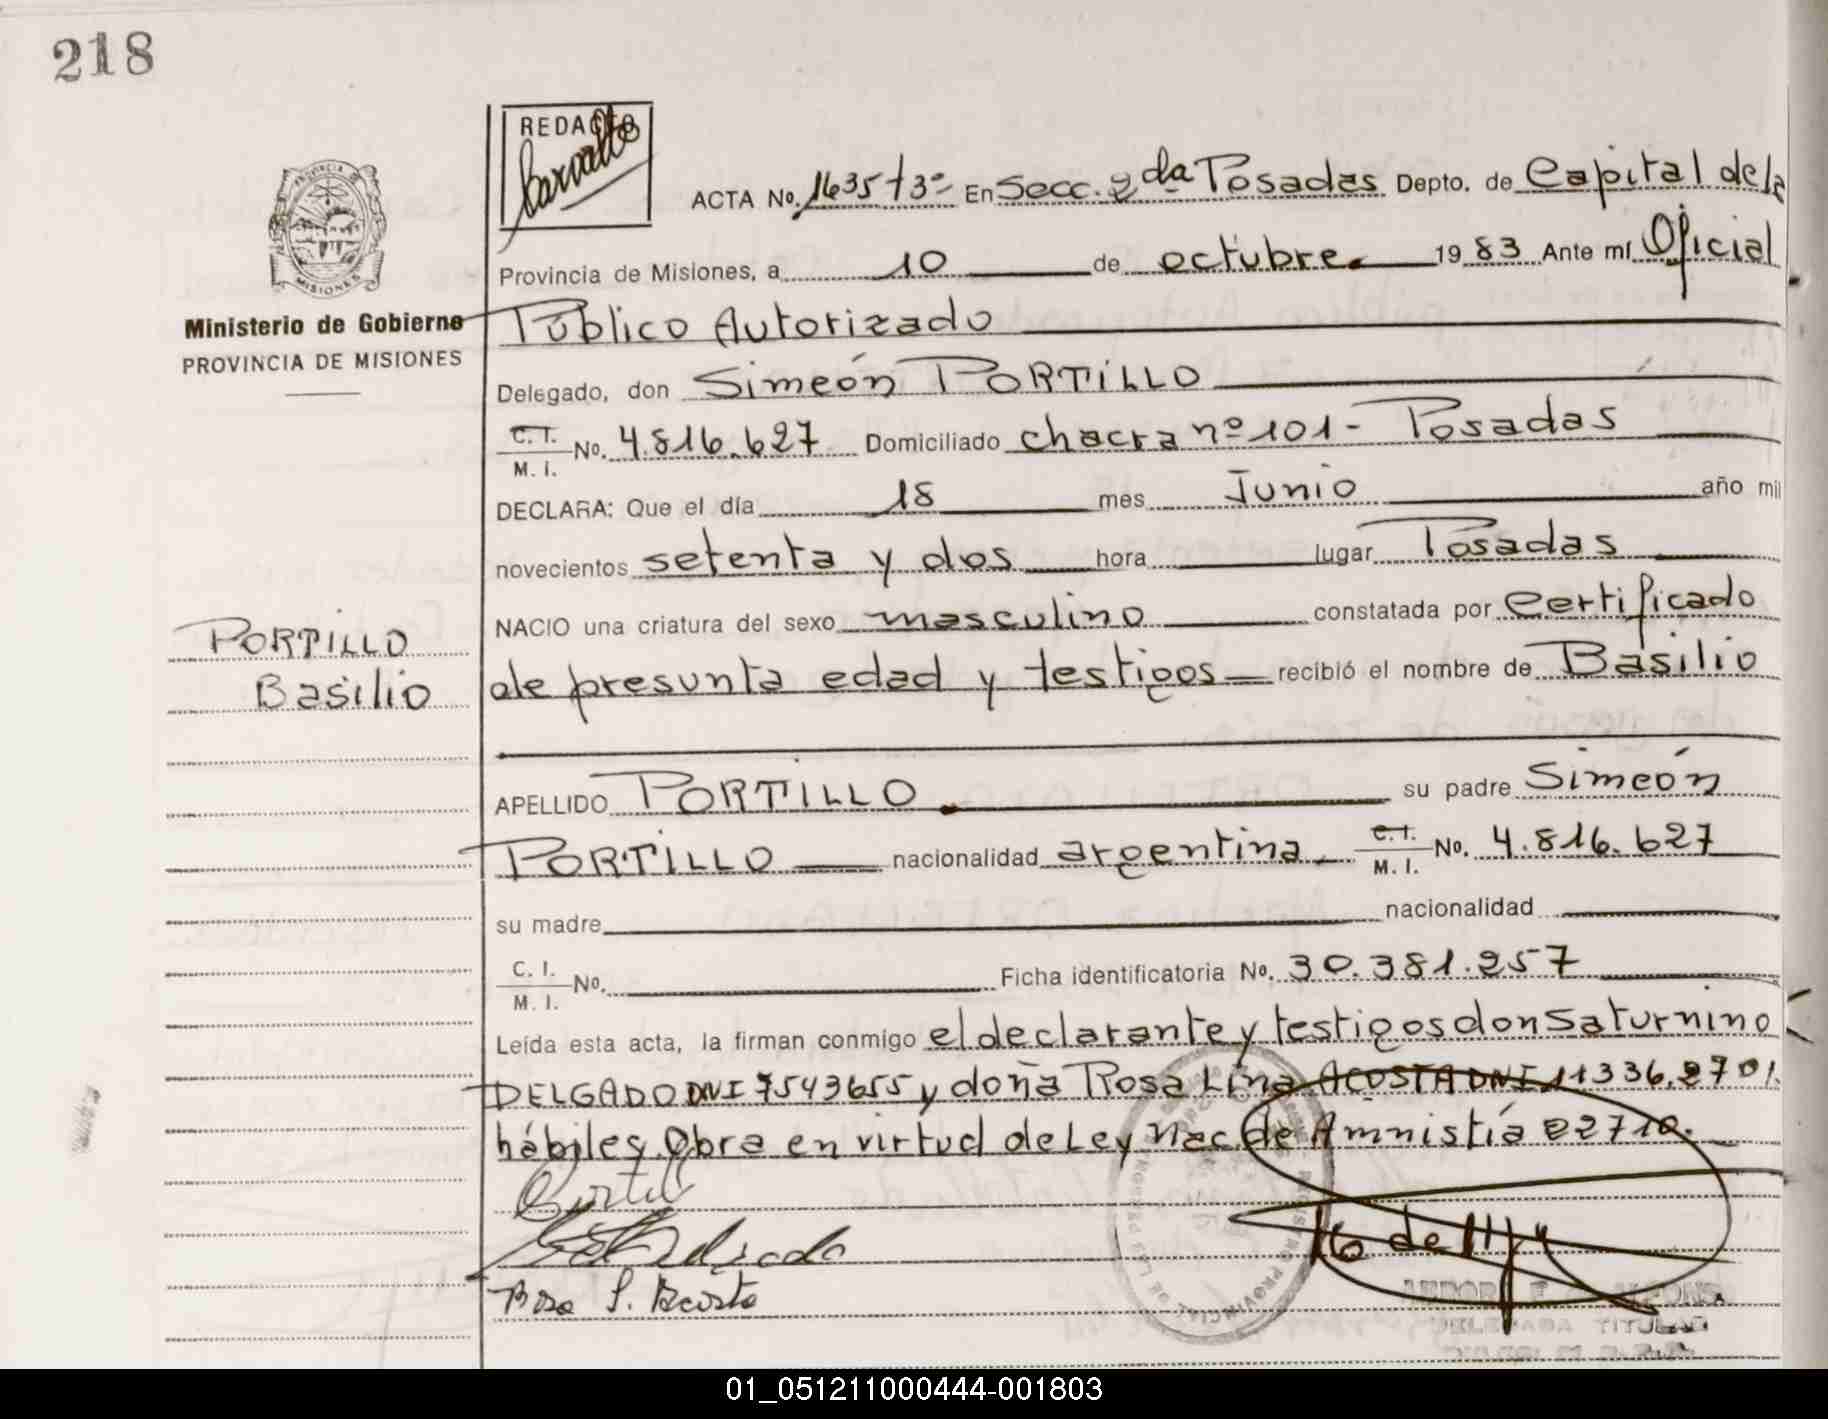 218
REDACTO
Carvallo
ACTA No. 1635 t 3º En Secc. 2da Posadas Depto. de Capital de la
Provincia de Misiones, a 10 de octubre 1983 Ante mí Oficial
Público Autorizado
MISIONES
Ministerio de Gobierno
PROVINCIA DE MISIONES
Delegado, don Simeón PORTILLO
C.I. M. I. No. 4.816.627 Domiciliado chacra nº 101 - Posadas
DECLARA: Que el día 18 mes Junio año mil
novecientos setenta y dos hora lugar Posadas
NACIO una criatura del sexo masculino constatada por Certificado
PORTILLO
Basilio
de presunta edad y testigos recibió el nombre de Basilio
APELLIDO PORTILLO su padre Simeón
PORTILLO nacionalidad argentina C.I. M. I. No. 4.816.627
su madre nacionalidad
C. I. M. I. No. Ficha identificatoria No. 30.381.257
Leída esta acta, la firman conmigo el declarante y testigos don Saturnino
DELGADO DNI 7543655 y doña Rosa Lina ACOSTA DNI 11336.270
hábiles. Obra en virtud de Ley Nac. de Amnistía 22710.
Rosa L. Acosta
16 de
TITULAR
01_051211000444-001803